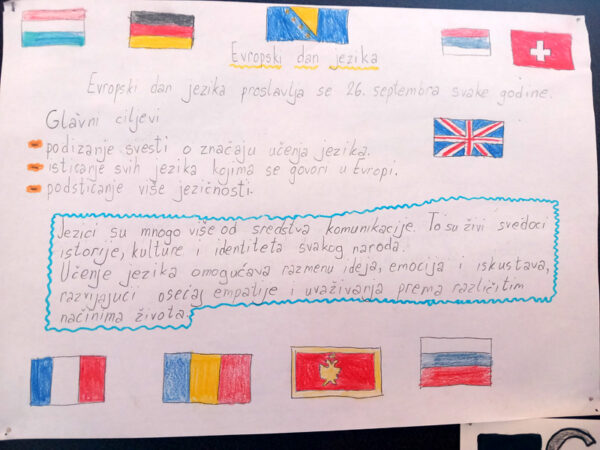 Evropski dan jezika
Evropski dan jezika proslavlja se 26. septembra svake godine.
Glavni ciljevi
podizanje svesti o značaju učenja jezika.
isticanje svih jezika kojima se govori u Evropi.
podsticanje više jezičnosti.
Jezici su mnogo više od sredstva komunikacije. To su živi svedoci
istorije, kulture i identiteta svakog naroda.
Učenje jezika omogućava razmenu ideja, emocija i iskustava,
razvijajući osećaj empatije i uvažavanja prema različitim
načinima života.